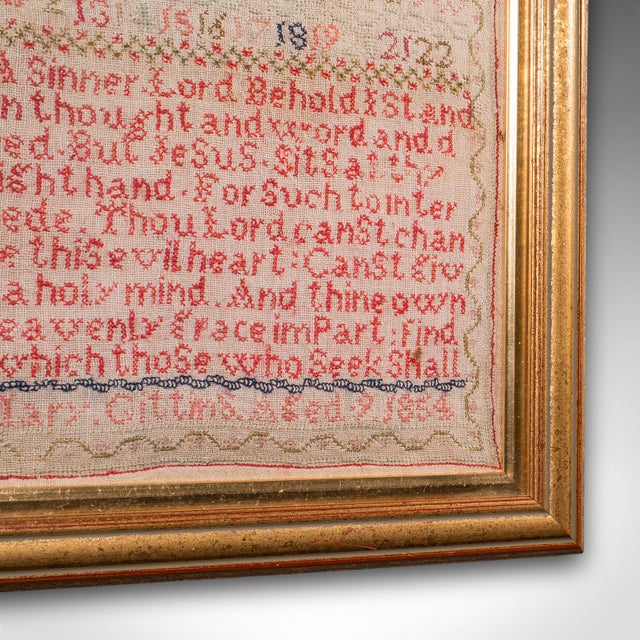 13 15 16 17 18 19 21 22
A Sinner. Lord Behold I Stand
n thought and Word and d
ed. But JeSuS. SitS at thy
ight hand. For Such to inter
ede. Thou Lord canSt chan
e thiS evil heart: CanSt giv
a holy mind. And thine own
eavenly Grace imPart: find
which thoSe who Seek Shall
lary. Gittins. Aged. 9. 1854